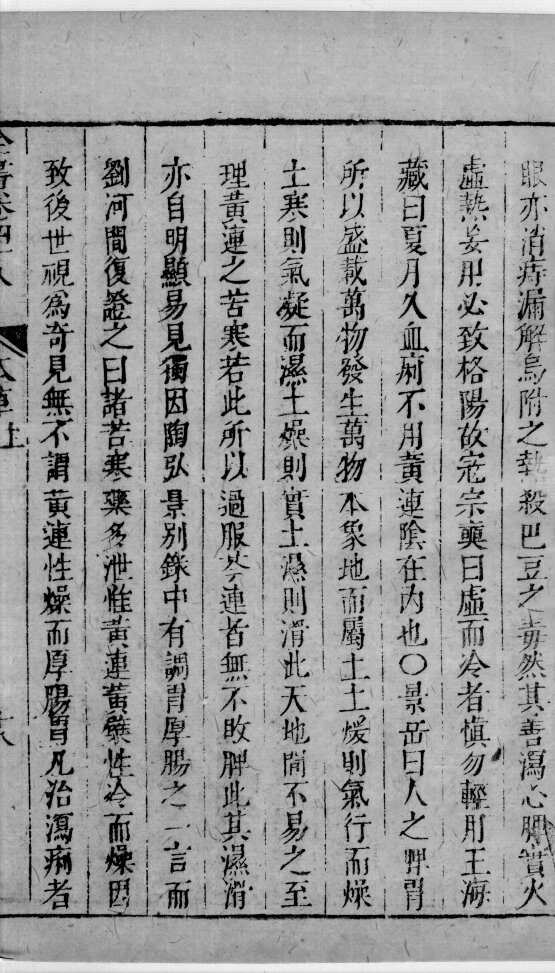 眼亦消痔漏解烏附之熱殺巴豆之毒然其善瀉心脾實火
虛熱妄用必致格陽故寇宗奭曰虛而冷者慎勿輕用王海
藏曰夏月久血痢不用黃連陰在內也○景岳曰人之脾胃
所以盛載萬物發生萬物本象地而屬土土煖則氣行而燥
土寒則氣凝而濕土燥則實土濕則滑此天地間不易之至
理黃連之苦寒若此所以過服芩連者無不敗脾此其濕滑
亦自明顯易見獨因陶弘景別錄中有調胃厚腸之一言而
劉河間復證之曰諸苦寒藥多泄惟黃連黃蘗性冷而燥因
致後世視為奇見無不謂黃連性燥而厚腸胃凡治瀉痢者
全書卷四十八
本草上